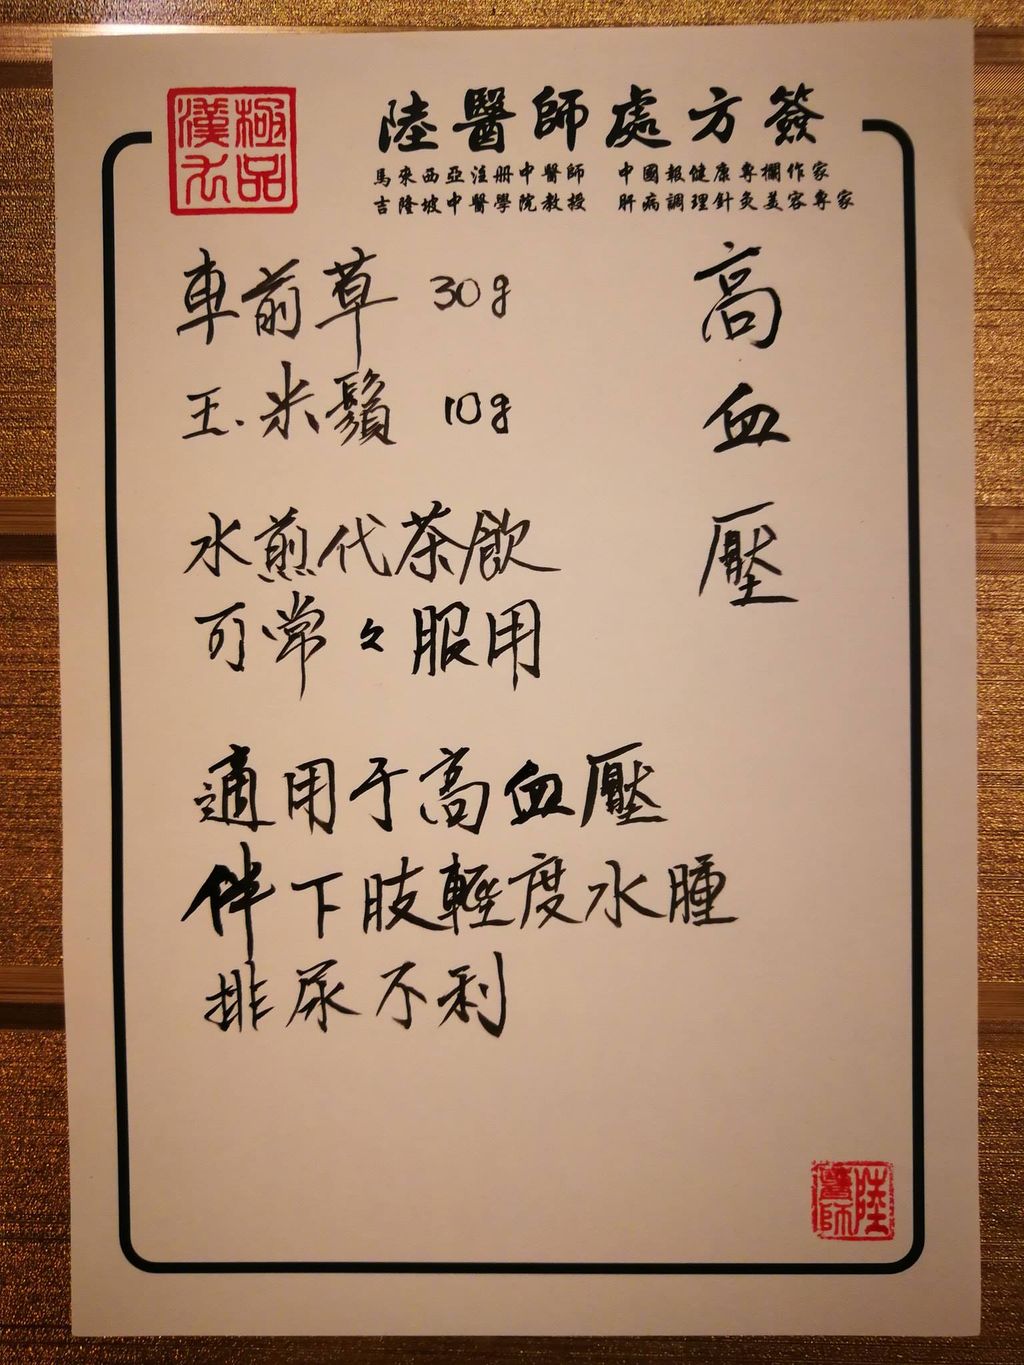 極品
漢方
陸醫師處方簽
馬來西亞注册中醫師 中國報健康專欄作家
吉隆坡中醫學院教授 肝病調理針灸美容專家
高血壓
車前草 30g
玉米鬚 10g
水煎代茶飲
可常々服用
適用于高血壓
伴下肢輕度水腫
排尿不利
陸醫師